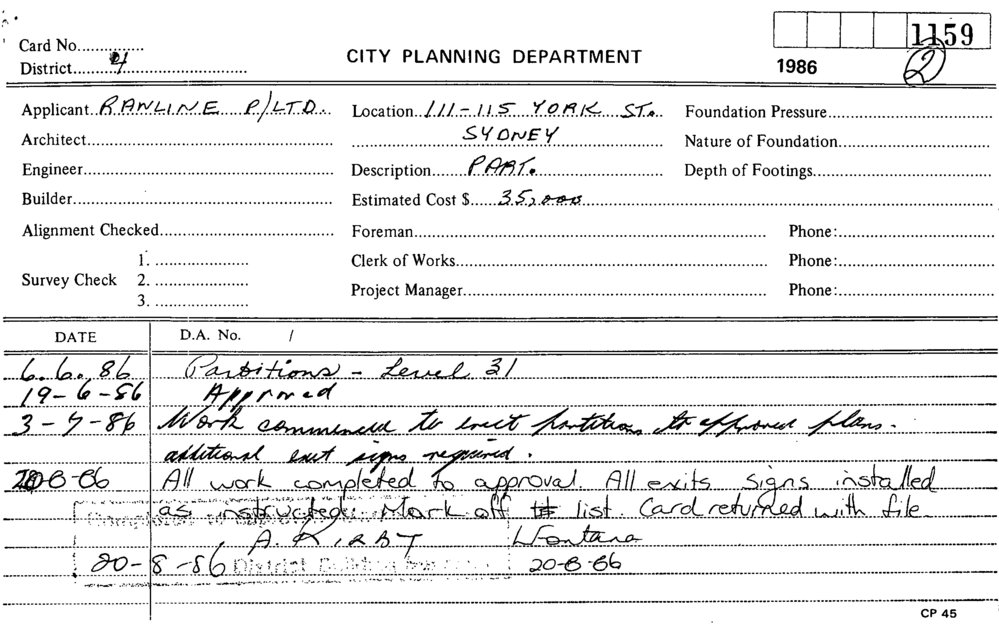 Card No................
District.....4.....
CITY PLANNING DEPARTMENT
1159
1986
2
Applicant..RAWLINE P/LTD.
Location../111-115 YORK ST.
Foundation Pressure
Architect
SYDNEY
Nature of Foundation
Engineer
Description.....PART.
Depth of Footings
Builder
Estimated Cost $.....35,000
Alignment Checked
Foreman
Phone:
Survey Check
1.
2.
3.
Clerk of Works
Phone:
Project Manager
Phone:
DATE
D.A. No. /
6.6.86 Partitions - Level 31
19-6-86 Approved
3-7-86 Work commenced to erect partitions to approved plans.
additional exit signs required.
20-8-86 All work completed to approval. All exits signs installed
as instructed. Mark off list. Card returned with file
A. KIRBY LFontana
20-8-86 District Building 20-8-86
CP 45